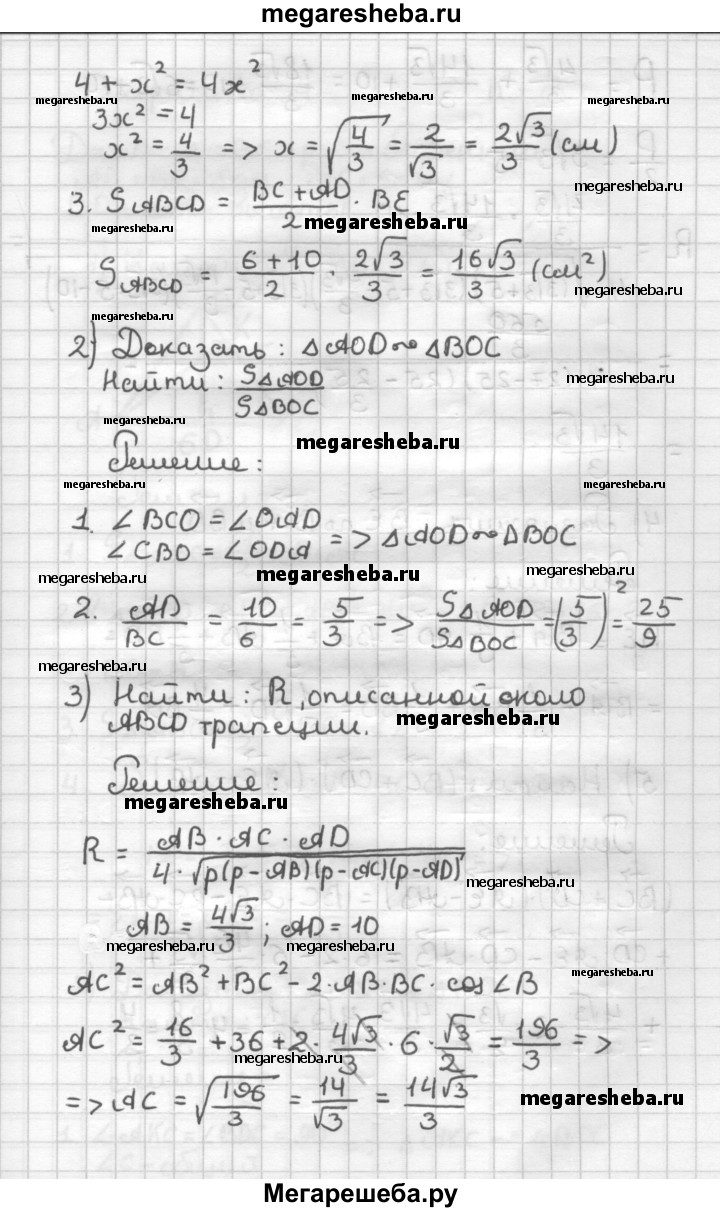 megaresheba.ru
4 + x² = 4x²
megaresheba.ru megaresheba.ru
3x² = 4
x² = 4/3 => x = √(4/3) = 2/√3 = 2√3/3 (см)
megaresheba.ru megaresheba.ru
3. S ABCD = (BC + AD)/2 · BE
megaresheba.ru megaresheba.ru
S ABCD = (6 + 10)/2 · 2√3/3 = 16√3/3 (см²)
megaresheba.ru megaresheba.ru
megaresheba.ru
2) Доказать: △AOD ∾ △BOC
Найти: S△AOD/S△BOC
megaresheba.ru
megaresheba.ru
megaresheba.ru
Решение:
megaresheba.ru megaresheba.ru megaresheba.ru
1. ∠BCO = ∠OAD
∠CBO = ∠ODA => △AOD ∾ △BOC
megaresheba.ru megaresheba.ru megaresheba.ru
2. AD/BC = 10/6 = 5/3 => S△AOD/S△BOC = (5/3)² = 25/9
megaresheba.ru megaresheba.ru
3) Найти: R, описанной около
ABCD трапеции. megaresheba.ru
Решение:
megaresheba.ru
R = AB · AC · AD/(4 · √(p(p-AB)(p-AC)(p-AD)))
megaresheba.ru
AB = 4√3/3; AD = 10
megaresheba.ru megaresheba.ru
AC² = AB² + BC² - 2·AB·BC· cos ∠B
megaresheba.ru
AC² = 16/3 + 36 + 2 · 4√3/3 · 6 · √3/2 = 196/3 =>
megaresheba.ru
=> AC = √(196/3) = 14/√3 = 14√3/3
megaresheba.ru
Мегарешеба.ру